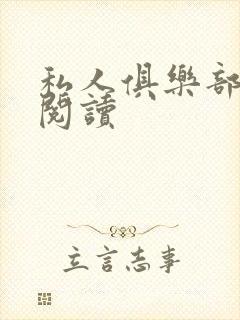 私人俱樂部
閱讀
立言志事